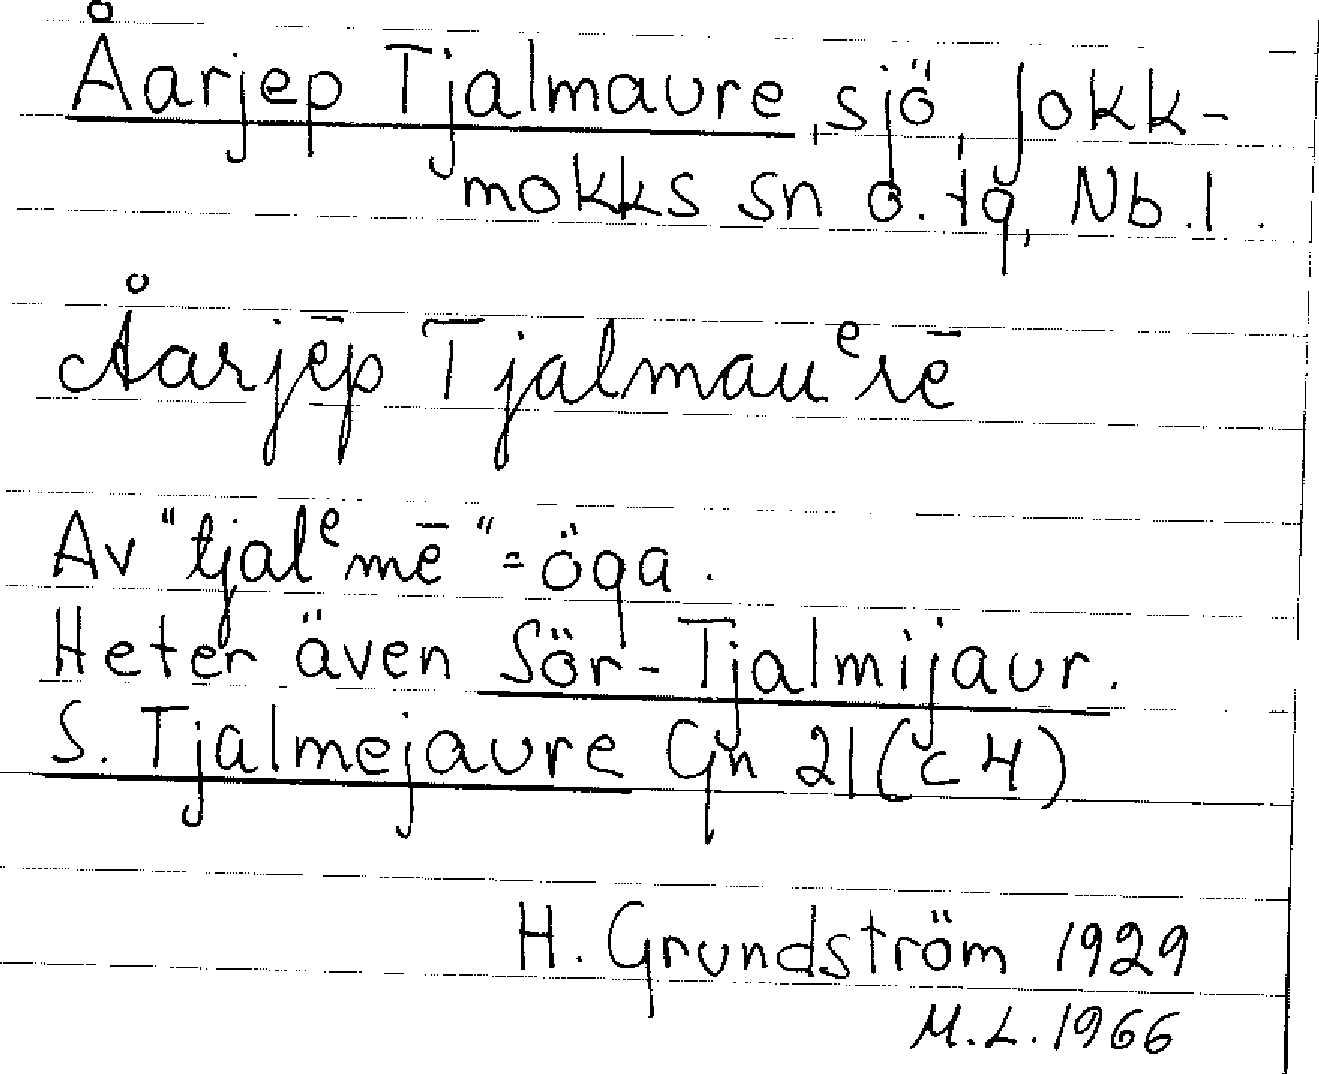 Åarjep Tjalmaure, sjö, Jokk-
mokks sn o. tg, Nb.l.
Åarjēp Tjalmauᵉrē
Av "tjalᵉmē" = öga.
Heter även Sör-Tjalmijaur.
S. Tjalmejaure Gn 21 (c4)
H. Grundström 1929
M.L. 1966